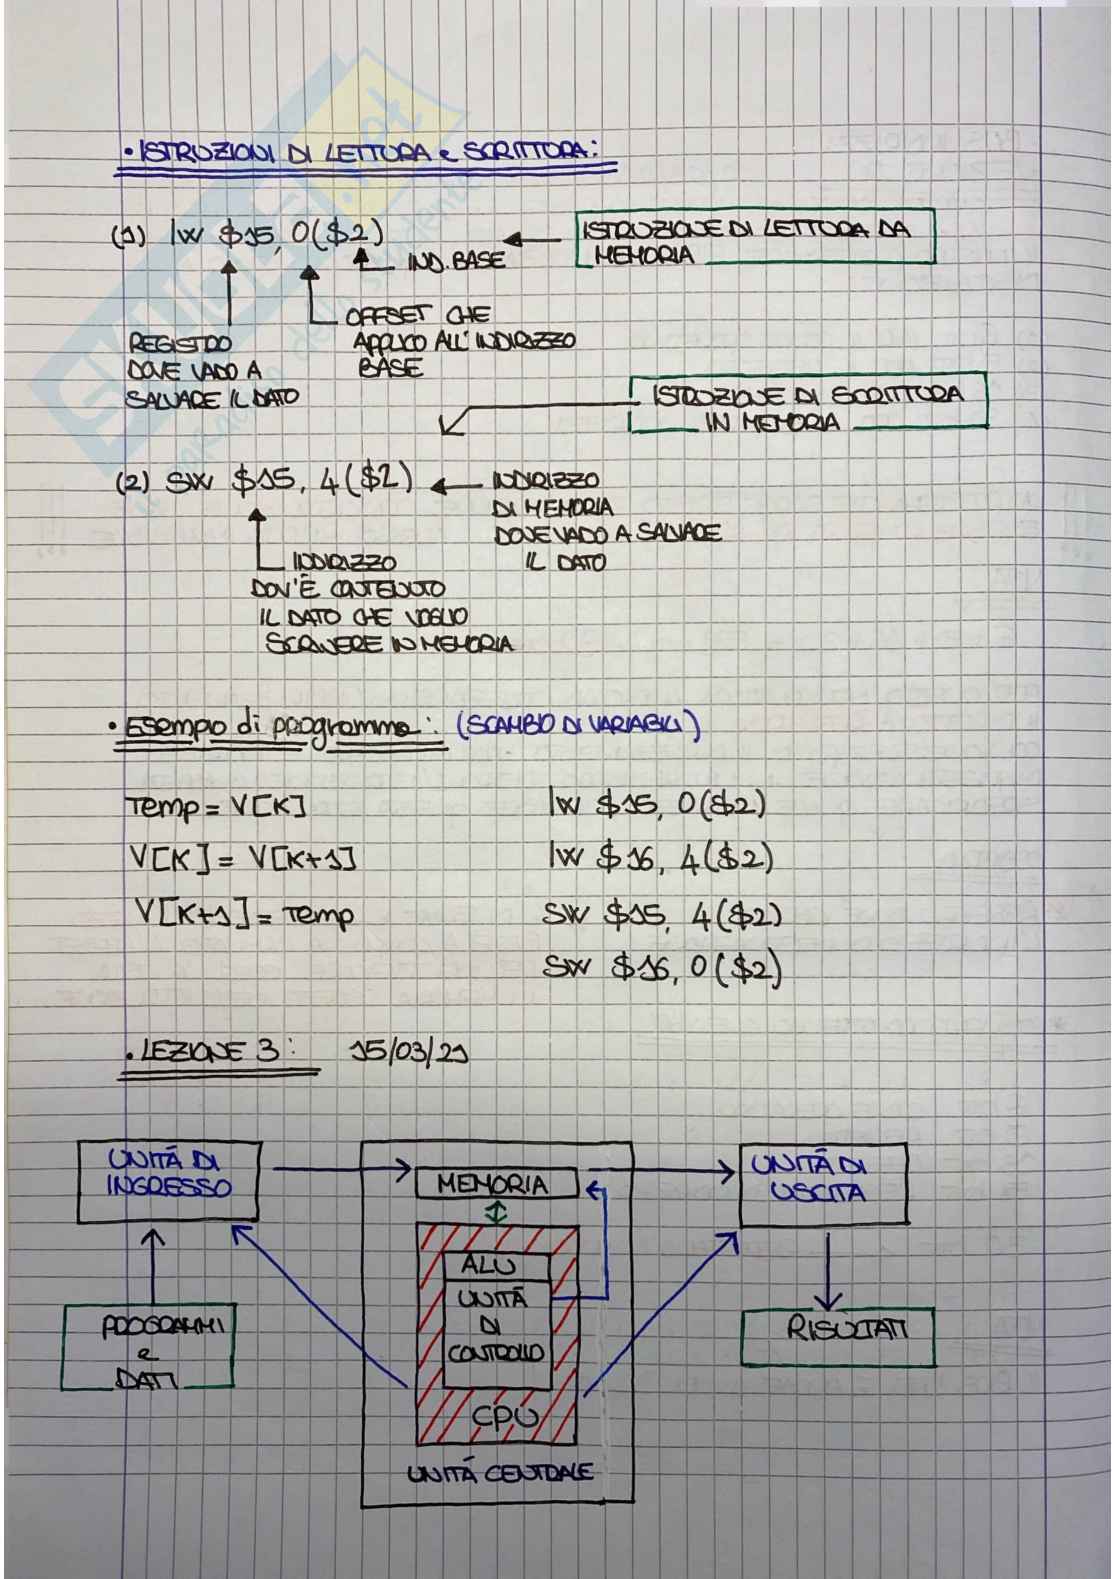 • ISTRUZIONI DI LETTURA e SCRITTURA:
(1) lw $15, 0($2)
ISTRUZIONE DI LETTURA DA
MEMORIA
IND. BASE
OFFSET CHE
APPLICO ALL'INDIRIZZO
BASE
REGISTRO
DOVE VADO A
SALVARE IL DATO
ISTRUZIONE DI SCRITTURA
IN MEMORIA
(2) SW $15, 4($2)
INDIRIZZO
DI MEMORIA
DOVE VADO A SALVARE
IL DATO
INDIRIZZO
DOV'È CONTENUTO
IL DATO CHE VOGLIO
SCRIVERE IN MEMORIA
• Esempio di programma: (SCAMBIO DI VARIABILI)
Temp = V[K]
V[K] = V[K+1]
V[K+1] = Temp
lw $15, 0($2)
lw $16, 4($2)
SW $15, 4($2)
SW $16, 0($2)
• LEZIONE 3: 15/03/21
UNITÁ DI
INGRESSO
PROGRAMMI
e
DATI
MEMORIA
ALU
UNITÁ
DI
CONTROLLO
CPU
UNITÁ CENTRALE
UNITÁ DI
USCITA
RISULTATI